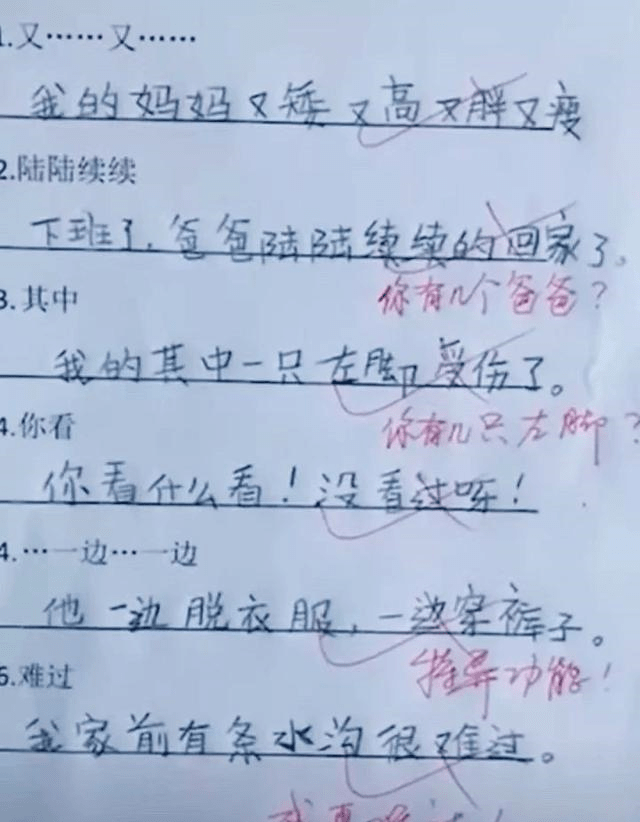 1.又……又……
我的妈妈又矮又高又胖又瘦
2.陆陆续续
下班了,爸爸陆陆续续的回家了。
你有几个爸爸?
3.其中
我的其中一只左脚受伤了。
你有几只左脚?
4.你看
你看什么看!没看过呀!
4.…一边…一边
他一边脱衣服,一边穿裤子。
特异功能!
6.难过
我家前有条水沟很难过。